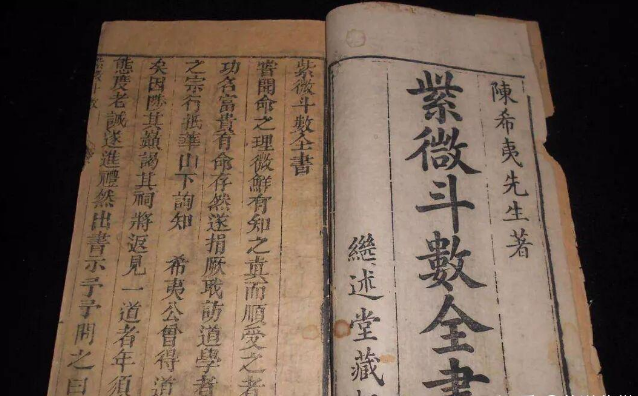 陳希夷先生著
紫微斗數全書
繼述堂藏
紫微斗數全書
嘗聞命之理微鮮有知之真而順受之者
功名富貴有命存然遂捐厥職訪道學者
之宗行抵華山下詢知　希夷公曾得道
矣因陟其巔謁其祠將返見一道者年須
態度老誠遂進禮然出書示予予問之曰
紫微斗數